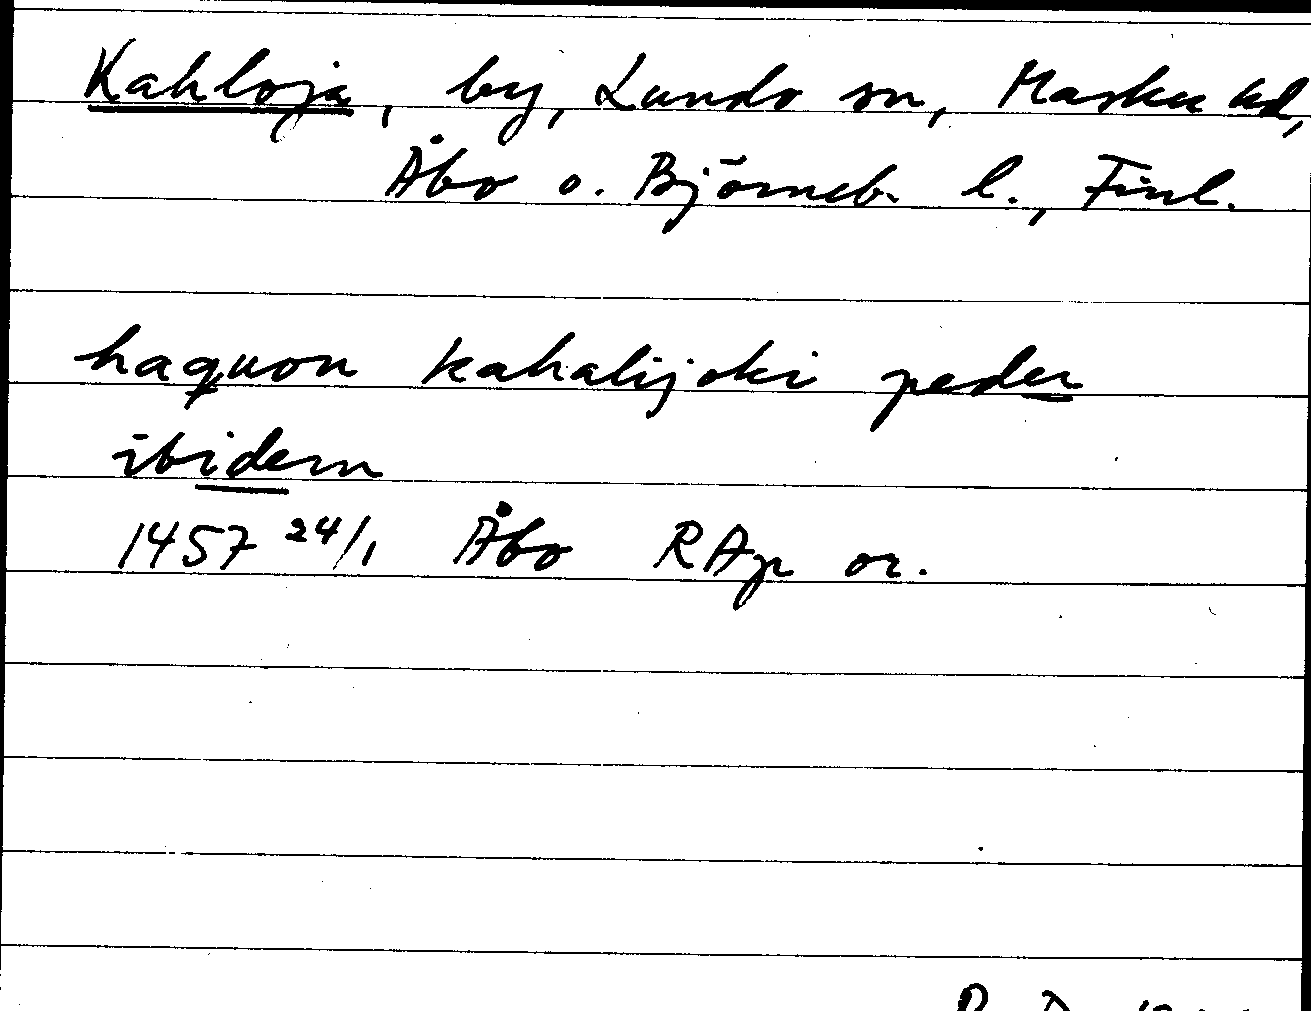 Kahloja, by, Lundo sn, Masku hd,
Åbo o. Björneb. l., Finl.
haquon kahalijoki peder
ibidem
1457 24/1 Åbo RAp or.